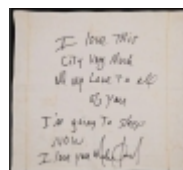 I love This
City Very Much
All my Love To all
of you
I'm going To Sleep
NOW
I love you